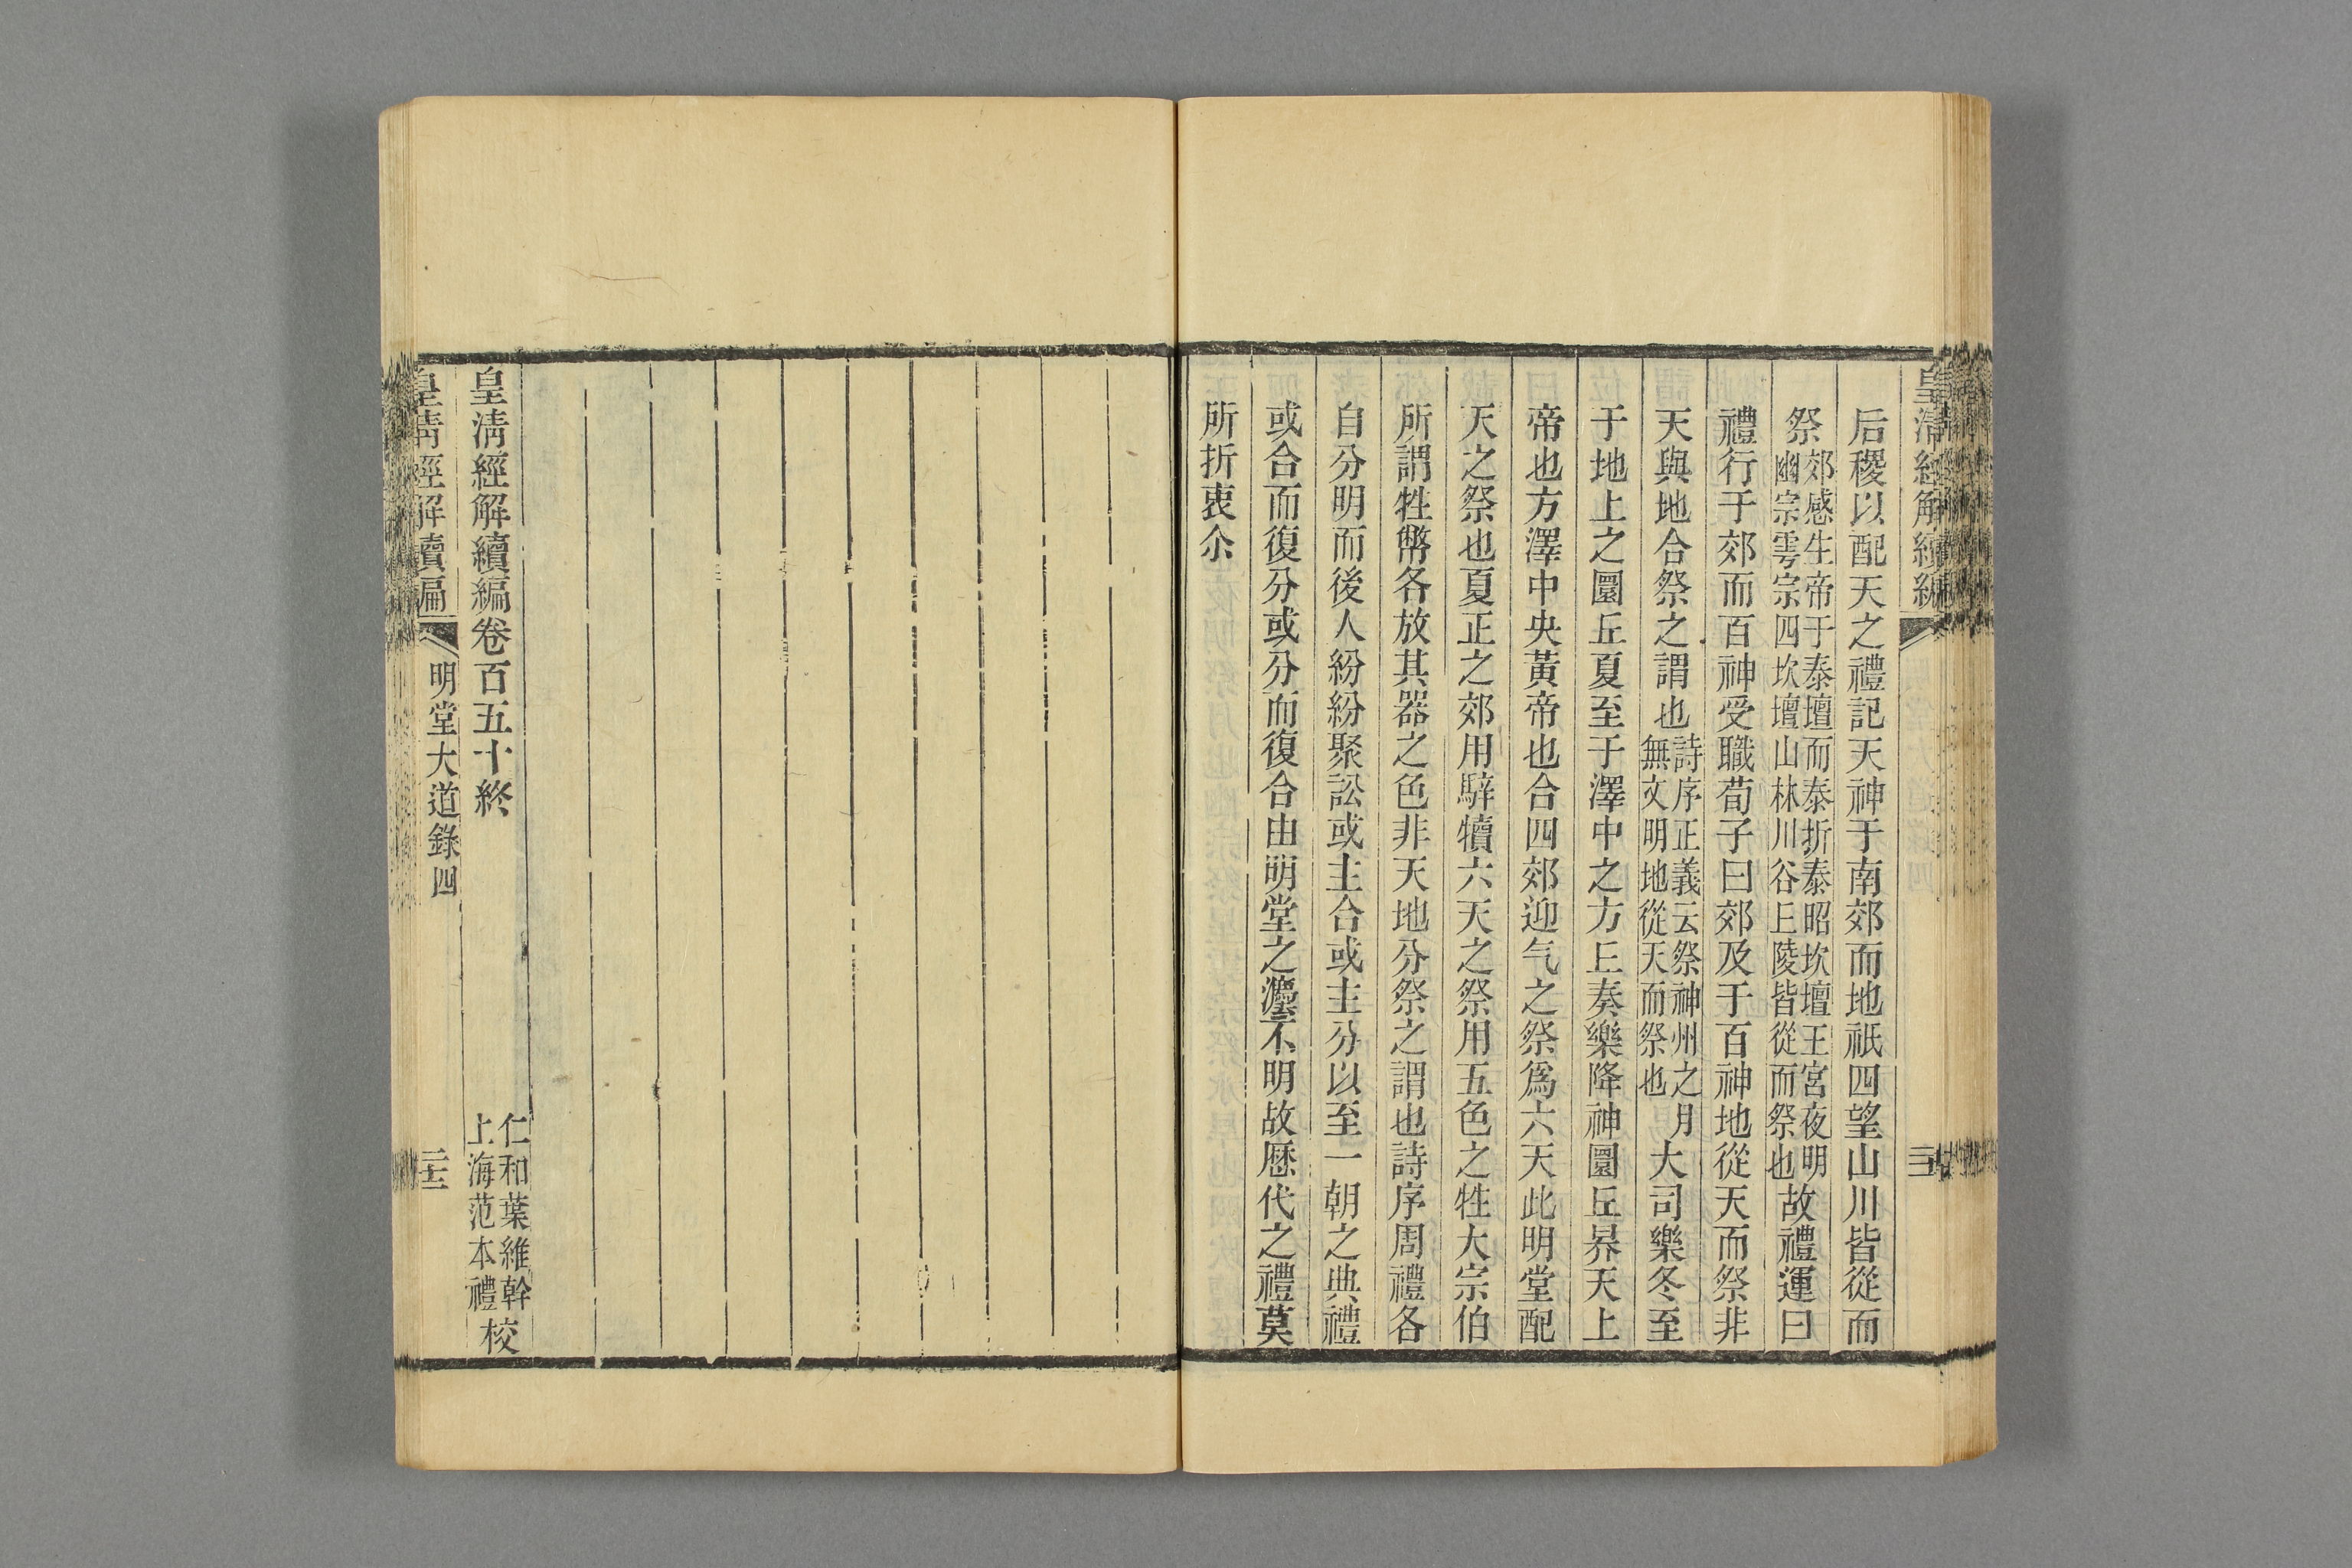 皇清經解續編
后稷以配天之禮記天神于南郊而地祇四望山川皆從而
祭郊感生帝于泰壇而泰折泰昭坎壇王宮夜明幽宗雩宗四坎壇山林川谷丘陵皆從而祭也故禮運曰
禮行于郊而百神受職荀子曰郊及于百神地從天而祭非
天與地合祭之謂也詩序正義云祭神州之月無文明地從天而祭也大司樂冬至
于地上之圜丘夏至于澤中之方丘奏樂降神圜丘昦天上
帝也方澤中央黃帝也合四郊迎气之祭爲六天此明堂配
天之祭也夏正之郊用騂犢六天之祭用五色之牲大宗伯
所謂牲幣各放其器之色非天地分祭之謂也詩序周禮各
自分明而後人紛紛聚訟或主合或主分以至一朝之典禮
或合而復分或分而復合由明堂之灋不明故厯代之禮莫
所折衷尒
皇清經解續編卷百五十終
仁和葉維幹
上海范本禮
校
皇清經解續編
明堂大道錄四